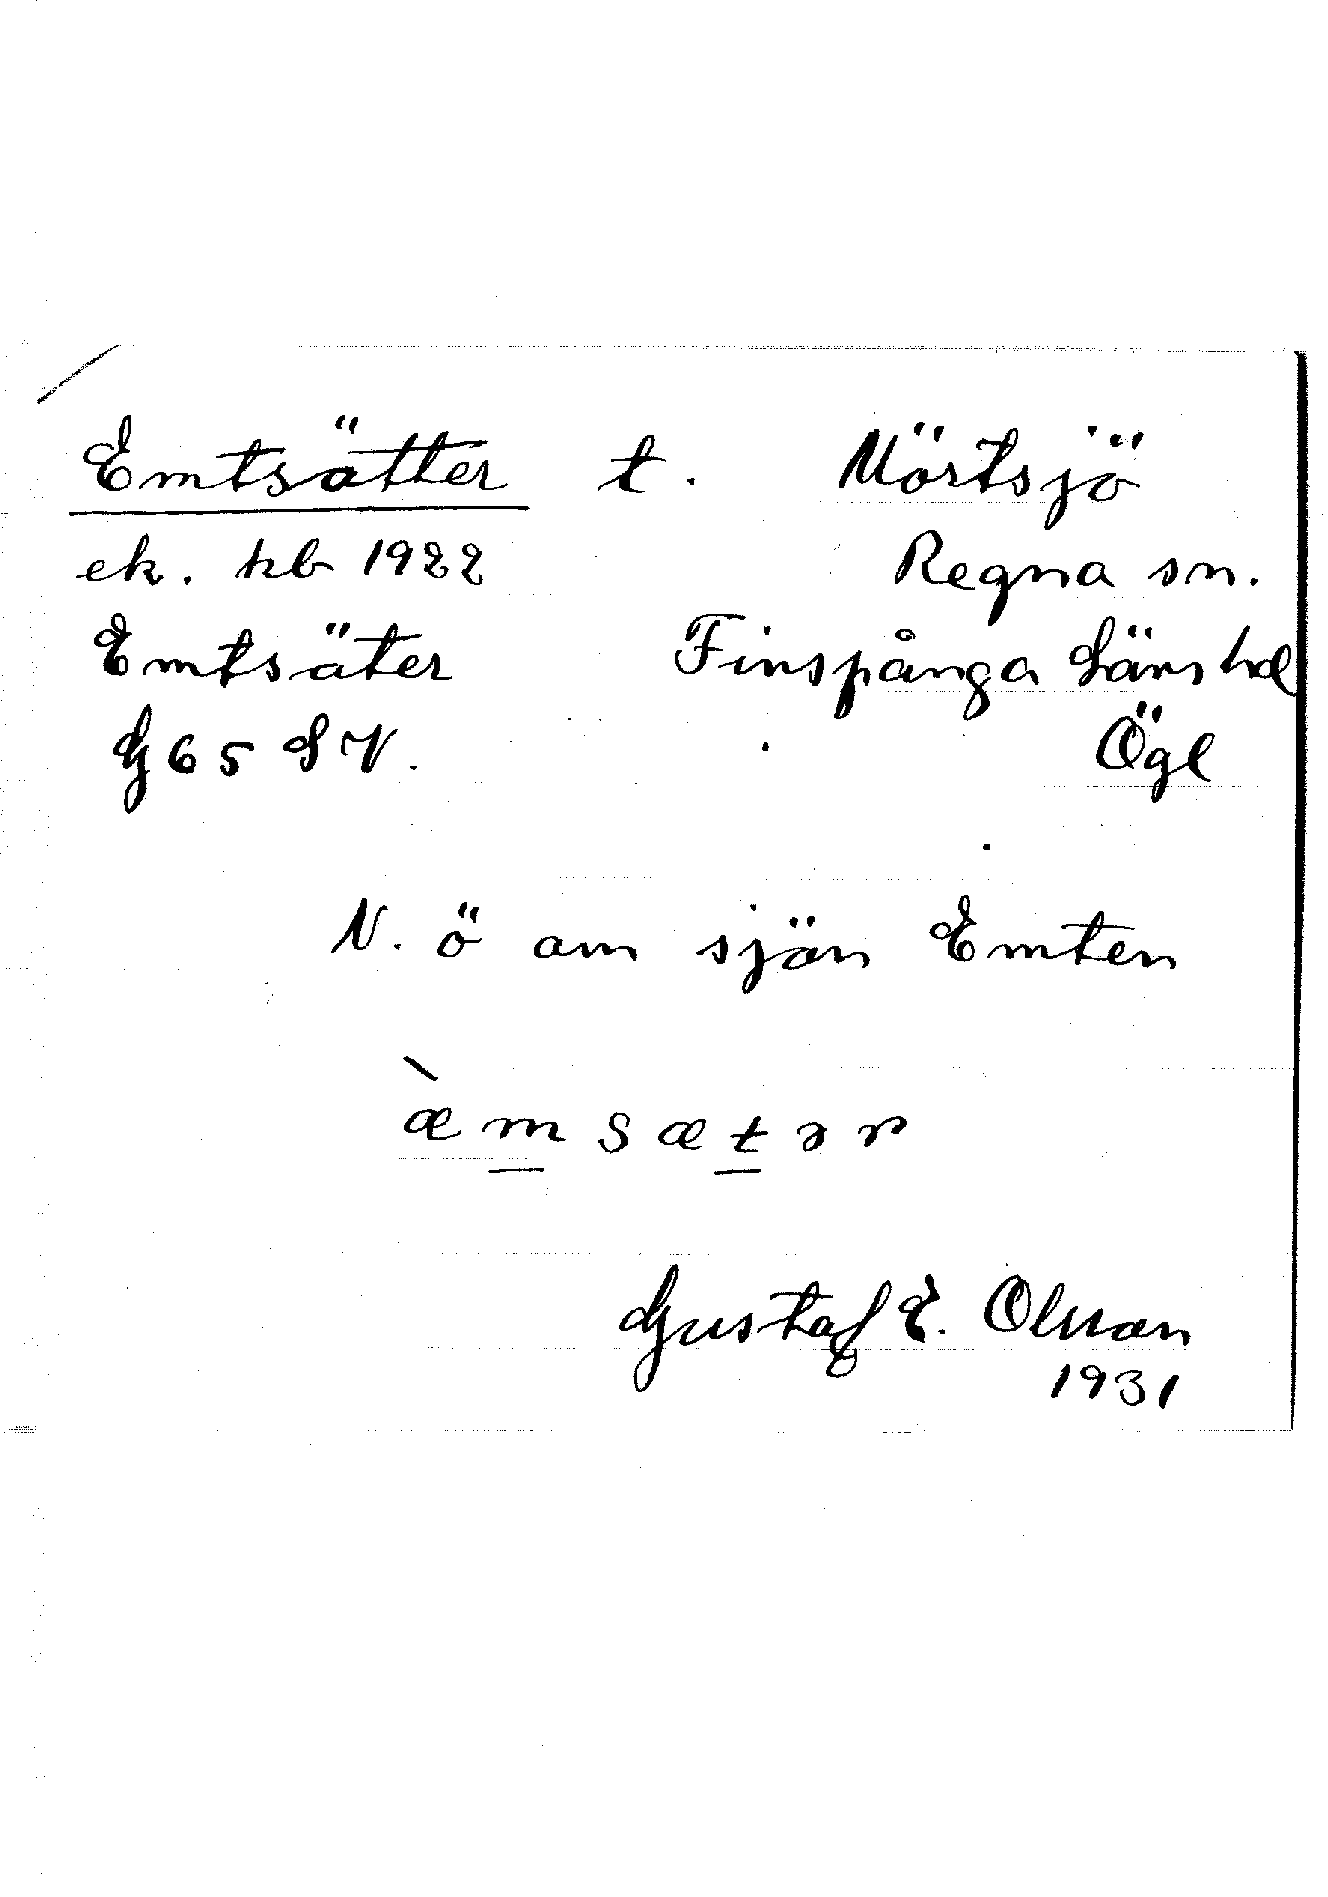 Emtsätter t. Mörtsjö
ek. kb 1922 Regna sn.
Emtsäter Finspånga läns hd
G 65 SV. Ögl
N. ö om sjön Emten
æ̀msætər
Gustaf E. Olsson
1931